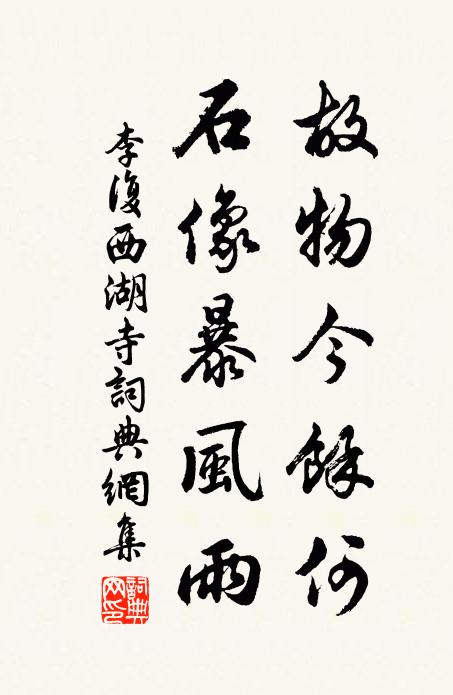 故物今餘何
石像暴風雨
李復西湖寺詞典網集
詞典网印